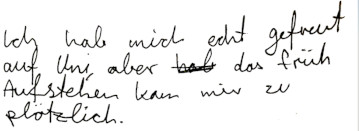 Ich hab mich echt gefreut
auf Uni, aber das früh
Aufstehen kam mir zu
plötzlich.